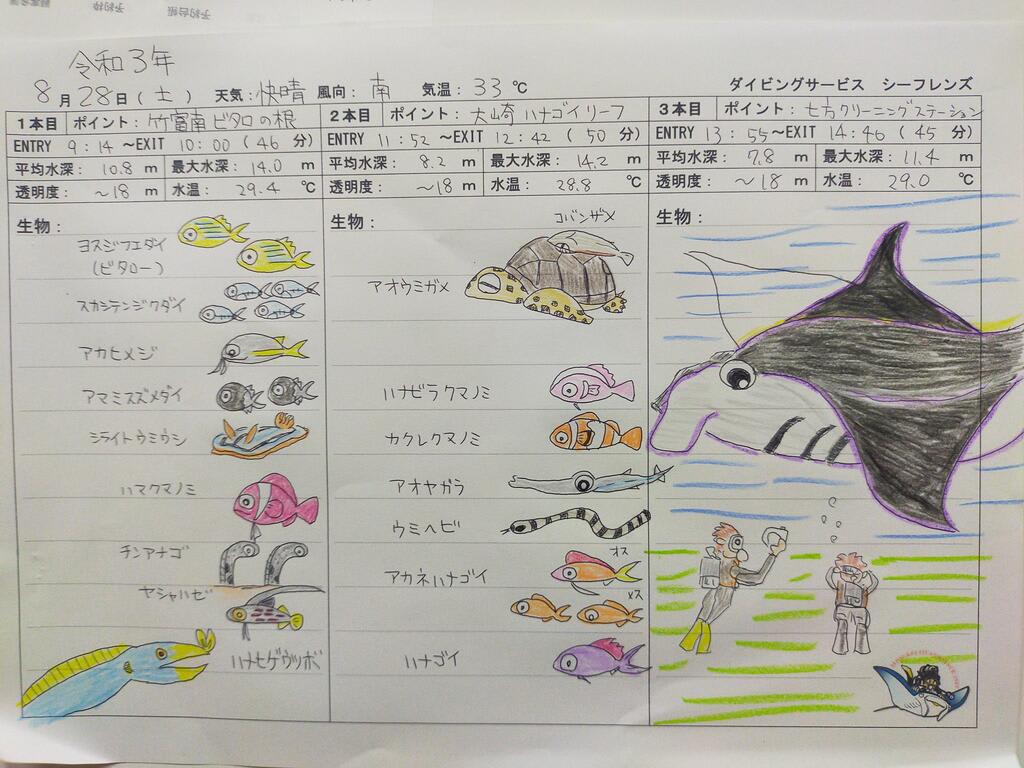 令和3年
8月28日(土) 天気:快晴 風向:南 気温:33℃ ダイビングサービス シーフレンズ
1本目 ポイント:竹富南ビタロの根
ENTRY 9:14 ~EXIT 10:00 (46分)
平均水深:10.8 m 最大水深:14.0 m
透明度:~18 m 水温:29.4 ℃
生物:
ヨスジフエダイ
(ビタロー)
スカシテンジクダイ
アカヒメジ
アマミスズメダイ
シライトウミウシ
ハマクマノミ
チンアナゴ
ヤシャハゼ
ハナヒゲウツボ
2本目 ポイント:大崎ハナゴイリーフ
ENTRY 11:52 ~EXIT 12:42 (50分)
平均水深:8.2 m 最大水深:14.2 m
透明度:~18 m 水温:28.8 ℃
生物:
コバンザメ
アオウミガメ
ハナビラクマノミ
カクレクマノミ
アオヤガラ
ウミヘビ
オス
アカネハナゴイ
メス
ハナゴイ
3本目 ポイント:七方クリーニングステーション
ENTRY 13:55 ~EXIT 14:46 (45分)
平均水深:7.8 m 最大水深:11.4 m
透明度:~18 m 水温:29.0 ℃
生物: